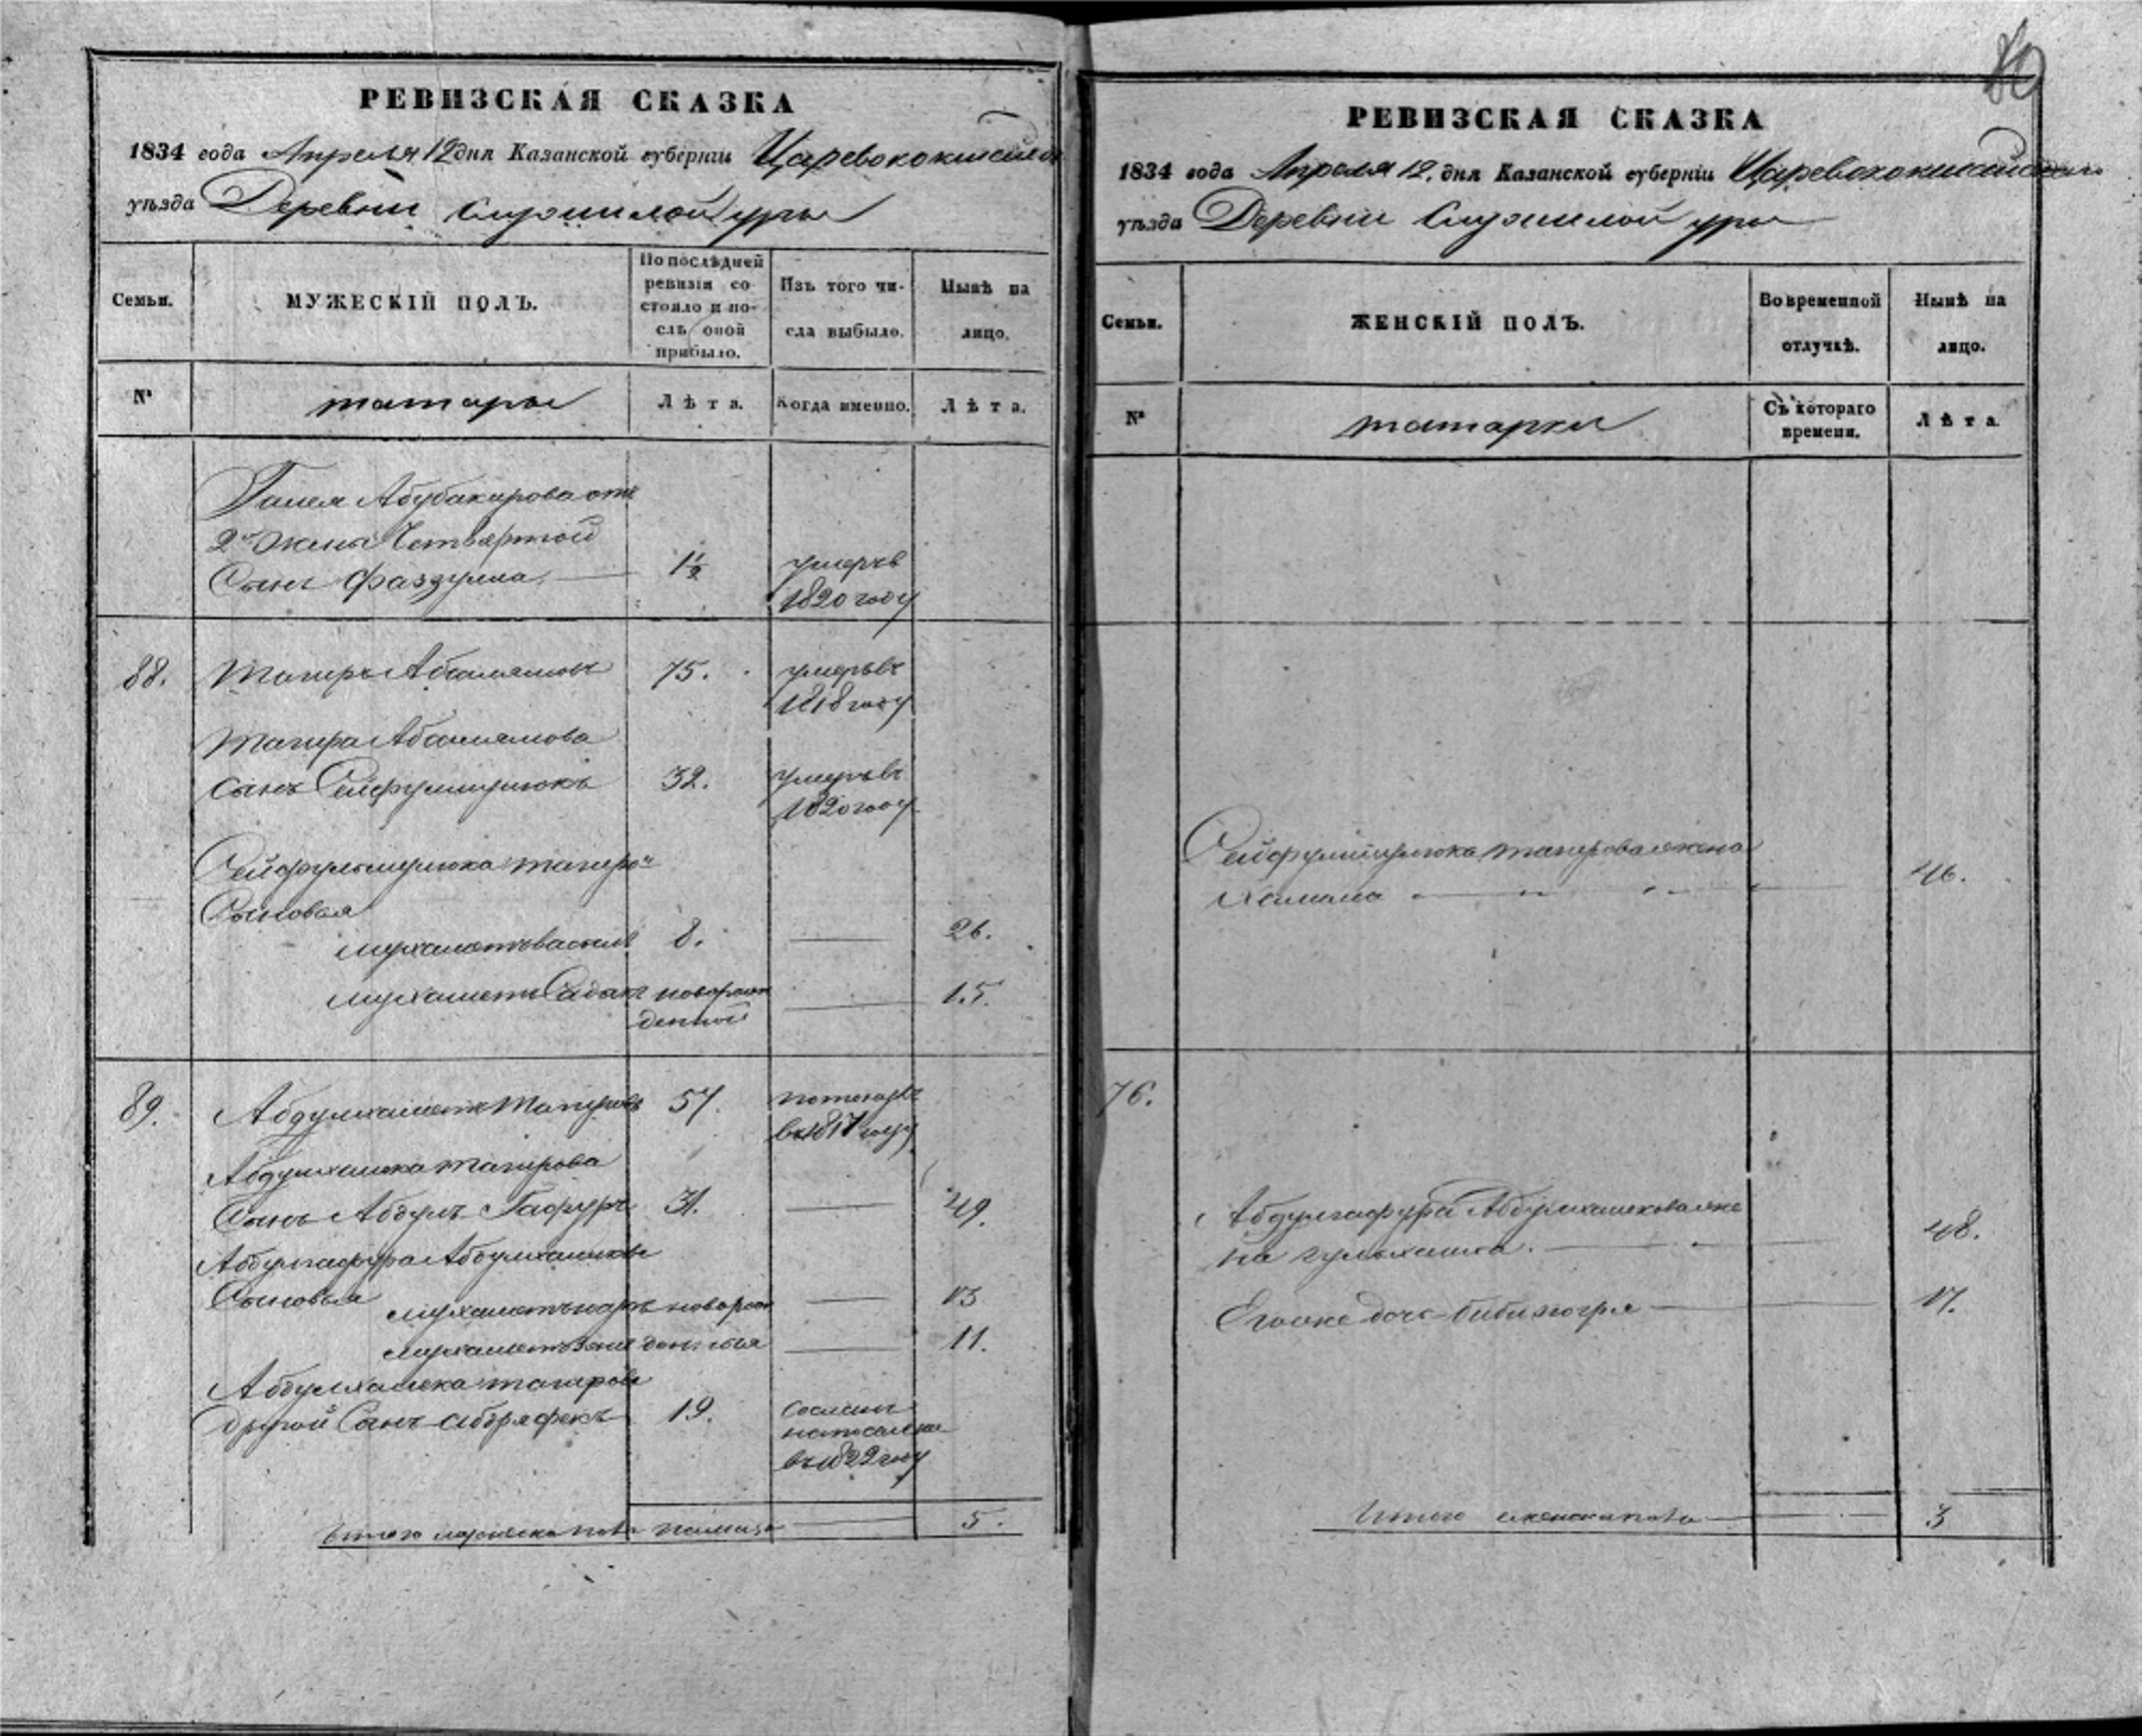 РЕВИЗСКАЯ СКАЗКА
1834 года Апреля 12 дня Казанской губернiи Царевококшайск
уѣзда Деревни Служилой уры
Семьи.
МУЖЕСКIЙ ПОЛЪ.
По послѣдней ревизiи состояло и послѣ оной прибыло.
Изъ того числа выбыло.
Нынѣ на лицо.
№
татары
Лѣта.
Когда именно.
Лѣта.
Галея Абубакирова отъ
2й Жены Четвертой
Сынъ Фаззулла 1½ умеръ в
1820 году
88. Тагиръ Абдалямовъ 75. умеръ въ
1818 году
Тагира Абдалямова
сынъ Сейфульмулюкъ 32. умеръ въ
1820 году
Сейфульмулюка Тагиро
Сыновья
мухаметъвасил 8. 26.
мухаметъ Садыкъ новорож 15.
денной
89. Абдулхаликъ Тагировъ 57.
въ 1817 году
Абдулхалика Тагирова
Сынъ Абдулъ Гафуръ 31. 49.
Абдулгафура Абдулхаликов
Сыновья
новорож 13
мухаметъ денныя 11.
Абдулхалика тагиров
другой Сынъ 19. Сосланъ
на поселенiе
въ 1822 году
Итого мужеска пола на лицо 5.
80
РЕВИЗСКАЯ СКАЗКА
1834 года Апреля 12. дня Казанской губернiи Царевококшайскаго
уѣзда Деревни Служилой уры
Семьи.
ЖЕНСКIЙ ПОЛЪ.
Во временной отлучкѣ.
Нынѣ на лицо.
№
татарки
Съ котораго времени.
Лѣта.
Сейфульмулюка тагирова жена
Халима 46.
76.
Абдулгафура Абдулхаликова же
на 48.
Егоже дочь 17.
Итого женска пола 3